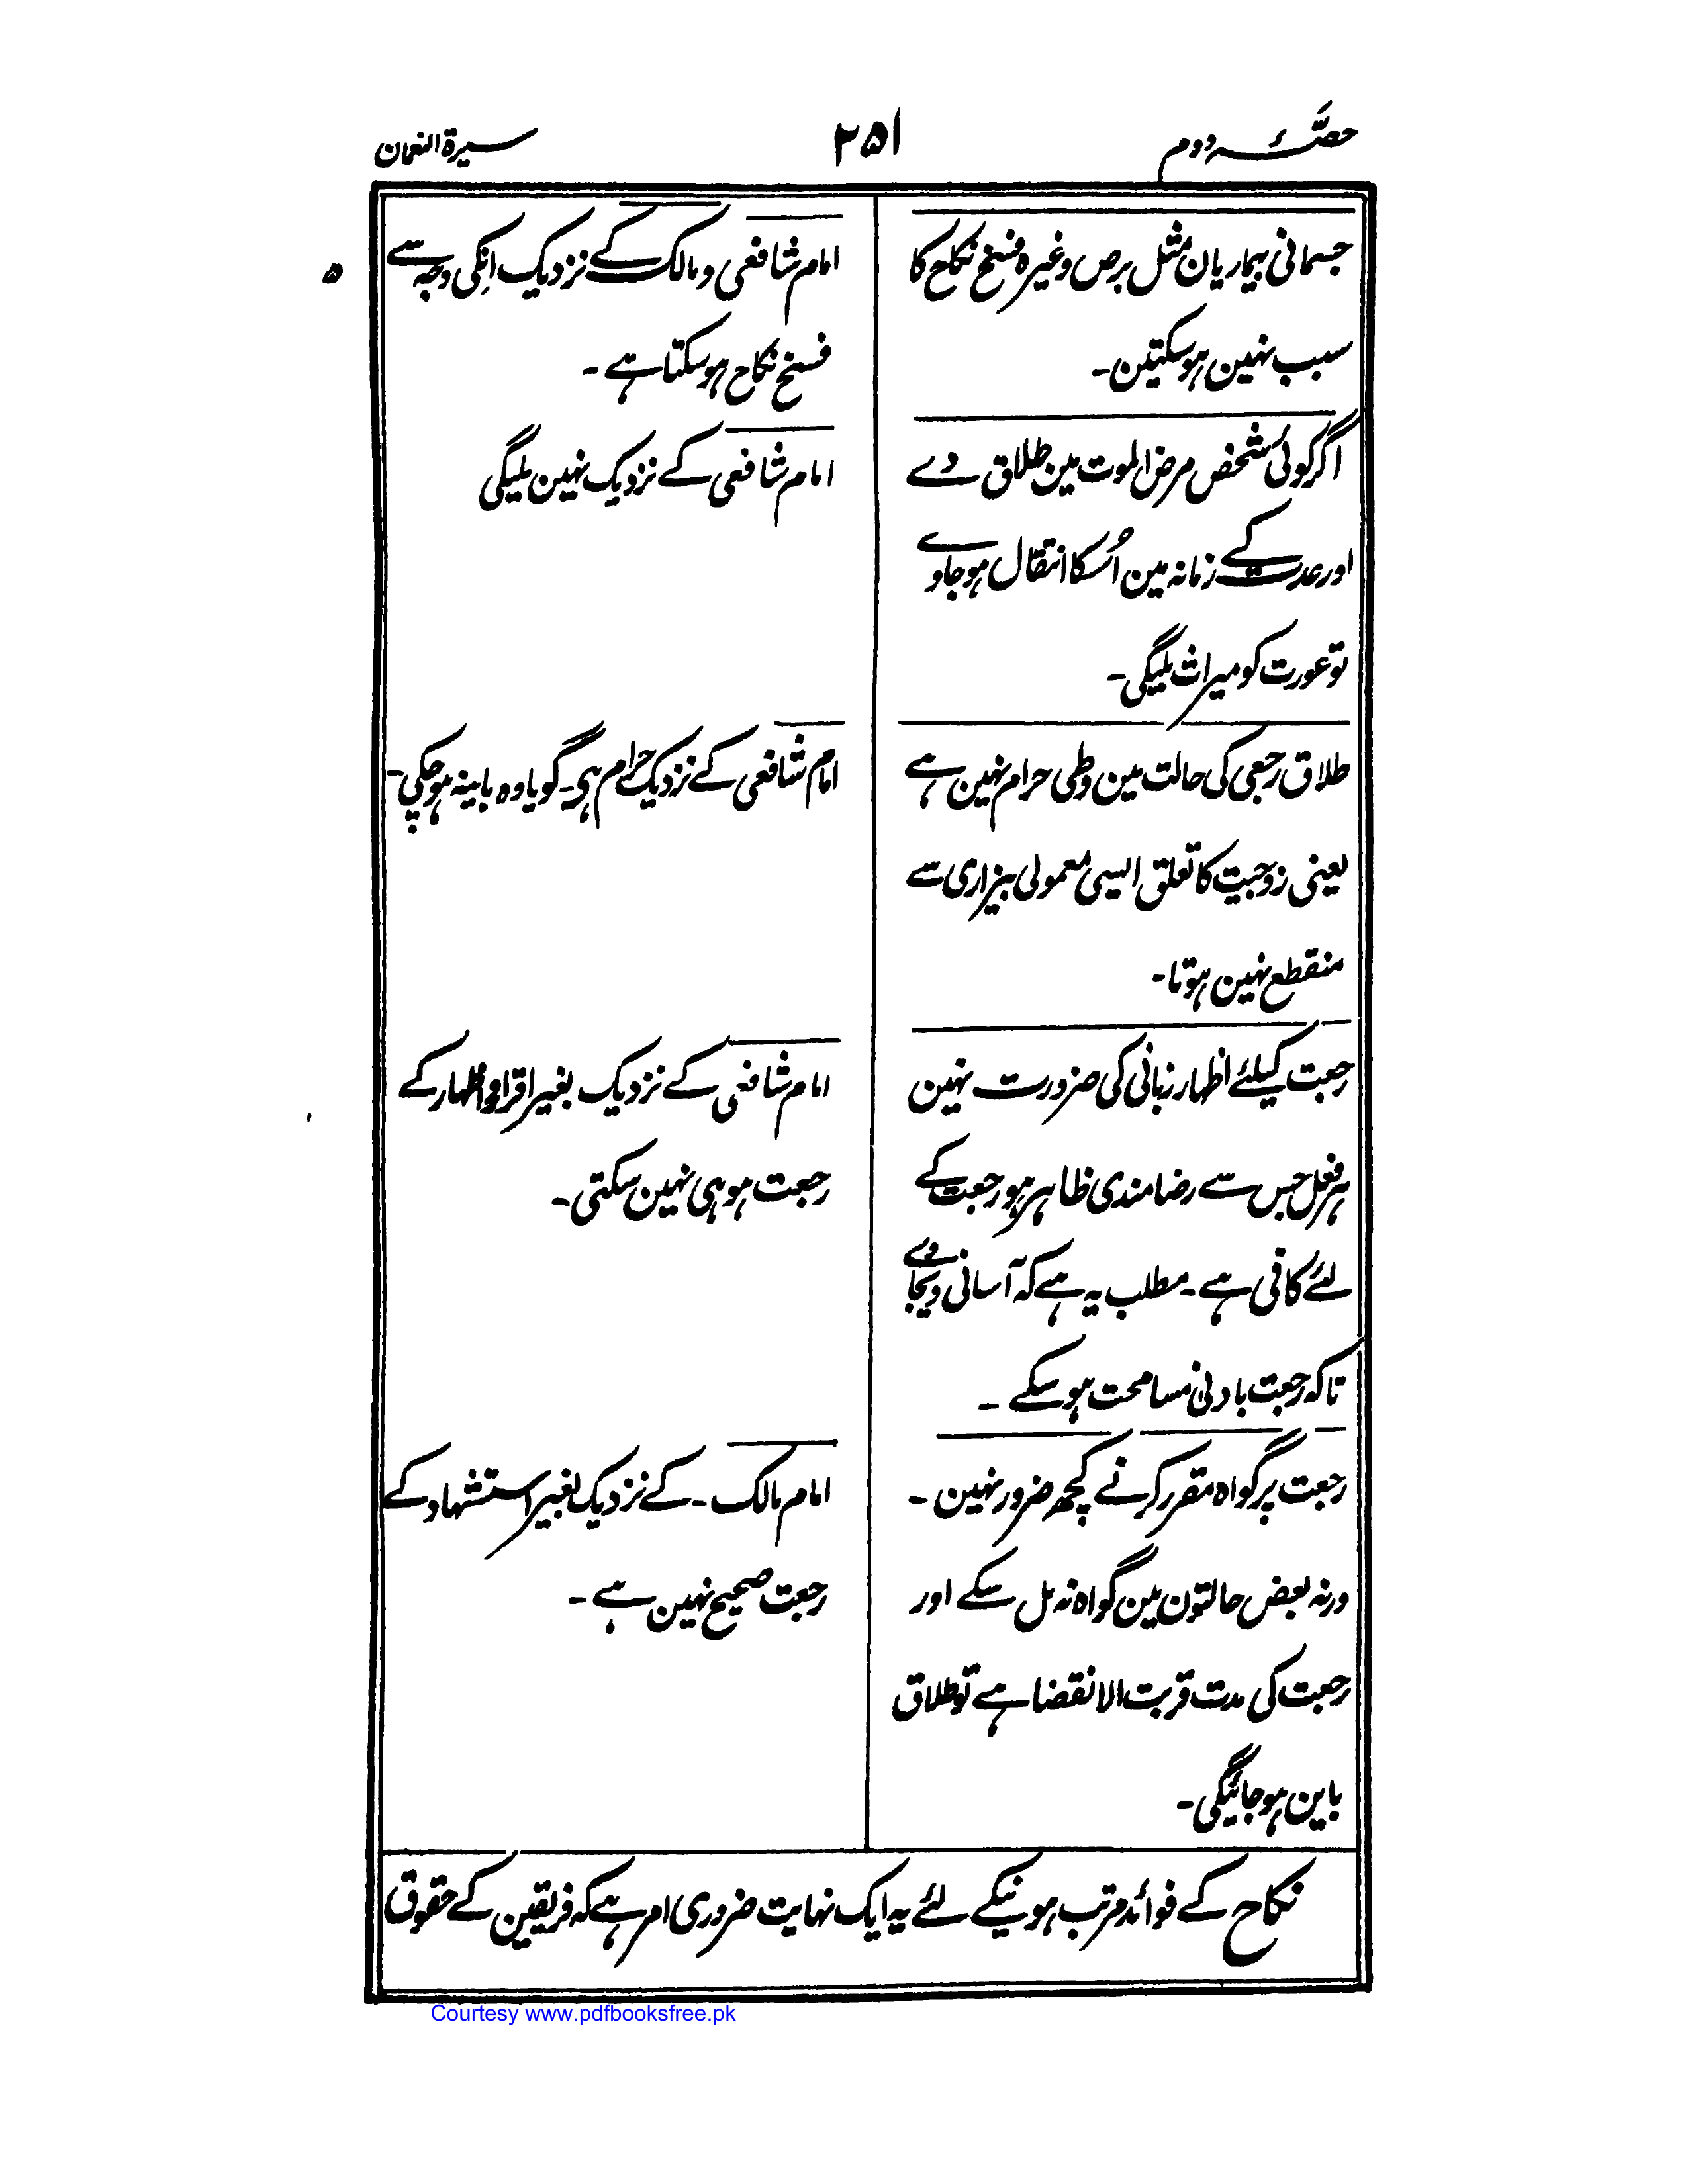 حصّۂ دوم
۲۵۱
سیرۃ النعمان
جسمانی بیماریان مثل برص وغیرہ فسخ نکاح کا
سبب نہین ہوسکتین۔
امام شافعی و مالک کے نزدیک انکی وجہ سے
فسخ نکاح ہوسکتا ہے۔
اگر کوئی شخص مرض الموت مین طلاق دے
اور عدت کے زمانہ مین اُسکا انتقال ہوجاوے
تو عورت کو میراث ملیگی۔
امام شافعی کے نزدیک نہین ملیگی
طلاق رجعی کی حالت مین وطی حرام نہین ہے
یعنی زوجیت کا تعلق ایسی معمولی بیزاری سے
منقطع نہین ہوتا۔
امام شافعی کے نزدیک حرام ہی۔ گویا وہ باینہ ہوچکی۔
رجعت کیلئے اظہار زبانی کی ضرورت نہین
ہر فعل جس سے رضامندی ظاہر ہو رجعت کے
لئے کافی ہے۔ مطلب یہ ہے کہ آسانی دیجاوے
تاکہ رجعت بادنیٰ مسامحت ہوسکے۔
امام شافعی کے نزدیک بغیر اقرار و اظہار کے
رجعت ہو ہی نہین سکتی۔
رجعت پر گواہ مقرر کرنے کچھ ضرور نہین۔
ورنہ بعض حالتون مین گواہ نہ مل سکے اور
رجعت کی مدت قریب الانقضا ہے تو طلاق
باین ہوجائیگی۔
امام مالک۔ کے نزدیک بغیر استشہاد کے
رجعت صحیح نہین ہے۔
نکاح کے فوائد مرتب ہونیکے لئے یہ ایک نہایت ضروری امر ہے کہ فریقین کے حقوق
Courtesy www.pdfbooksfree.pk